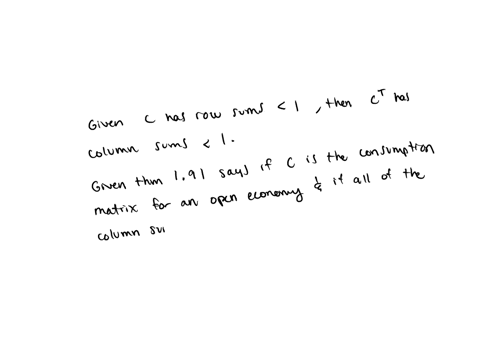 Given C has row sums < 1, then Cᵀ has
column sums < 1.
Given thm 1.91 says if C is the consumption
matrix for an open economy & if all of the
column su